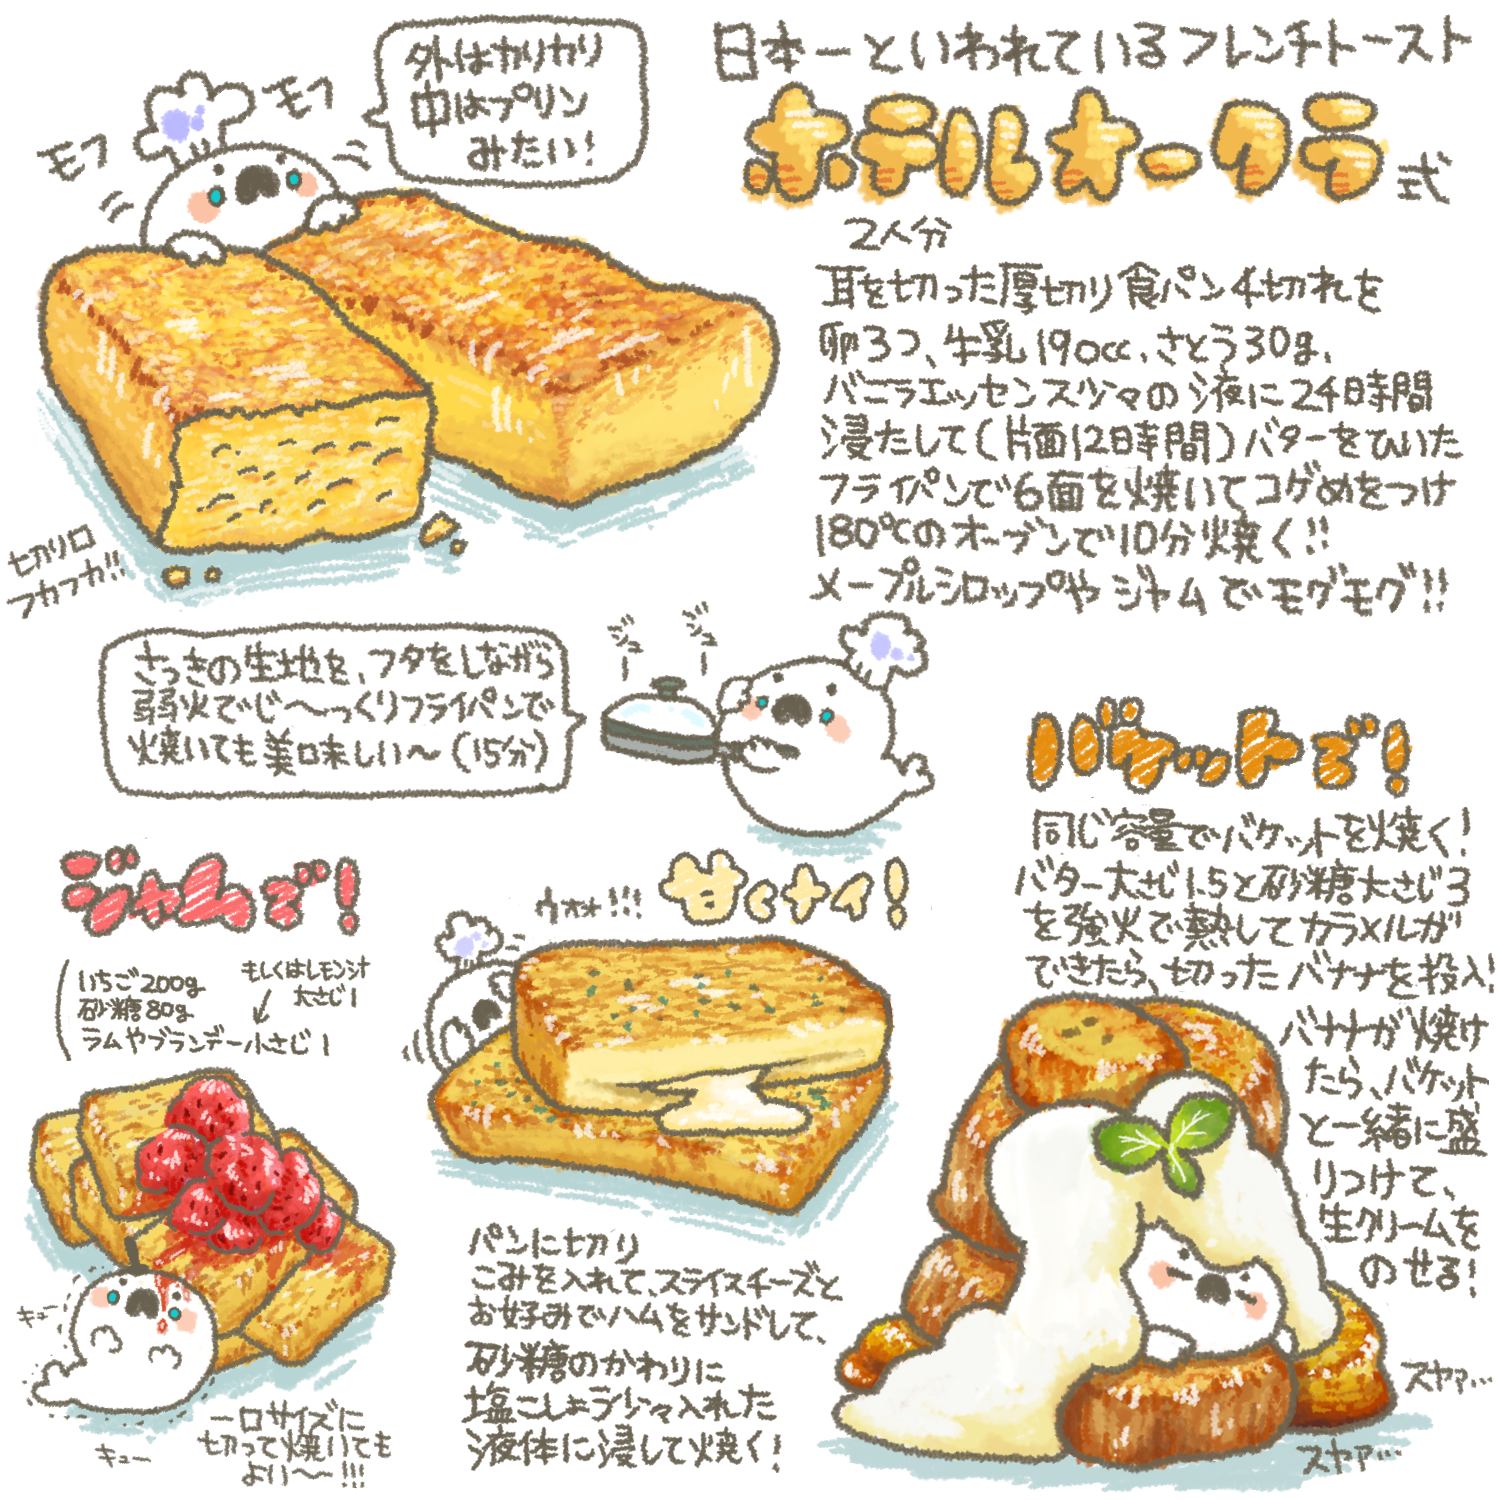 日本一といわれているフレンチトースト
ホテルオークラ式
2人分
耳を切った厚切り食パン4切れを
卵3つ、牛乳190cc、さとう30g、
バニラエッセンス少々の液に24時間
浸たして(片面12時間)バターをひいた
フライパンで6面を焼いてコゲめをつけ
180℃のオーブンで10分焼く!!
メープルシロップやジャムでモグモグ!!
外はカリカリ
中はプリン
みたい!
モフ
モフ
切り口
フカフカ!!
さっきの生地を、フタをしながら
弱火でじ〜〜っくりフライパンで
焼いても美味しい〜(15分)
ジュー
ジュー
ジャムで!
いちご200g
砂糖80g
ラムやブランデー小さじ1
もしくはレモン汁
大さじ1
キュー
キュー
一口サイズに
切って焼いても
よい〜〜!!!
甘くナイ!
ウオォ!!!
パンに切り
こみを入れて、スライスチーズと
お好みでハムをサンドして、
砂糖のかわりに
塩こしょう少々入れた
液体に浸して焼く!
バケットで!
同じ容量でバケットを焼く!
バター大さじ1.5と砂糖大さじ3
を強火で熱してカラメルが
できたら、切ったバナナを投入!
バナナが焼け
たら、バケット
と一緒に盛
りつけて、
生クリームを
のせる!
スヤァ…
スヤァ…